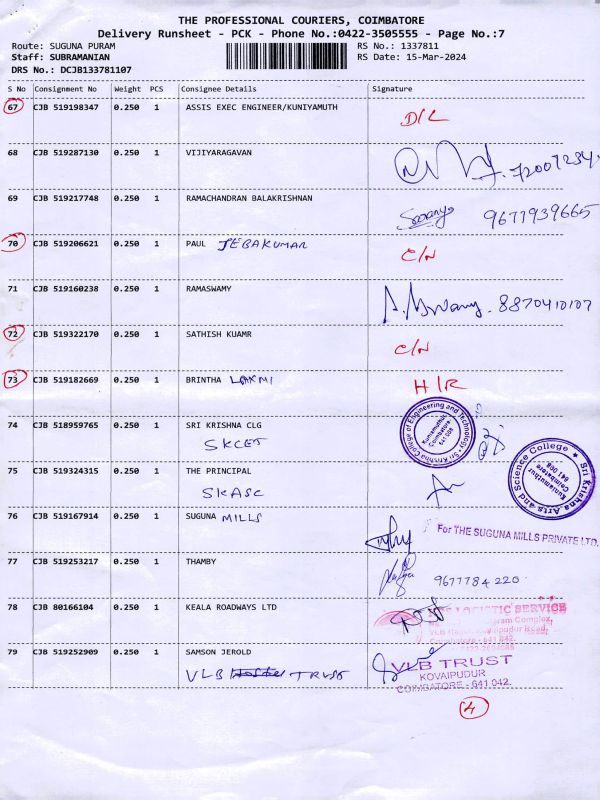 THE PROFESSIONAL COURIERS, COIMBATORE
Delivery Runsheet - PCK - Phone No.:0422-3505555 - Page No.:7
Route: SUGUNA PURAM
RS No.: 1337811
Staff: SUBRAMANIAN
RS Date: 15-Mar-2024
DRS No.: DCJB133781107
S No Consignment No Weight PCS Consignee Details Signature
67 CJB 519198347 0.250 1 ASSIS EXEC ENGINEER/KUNIYAMUTH D/L
68 CJB 519287130 0.250 1 VIJIYARAGAVAN
69 CJB 519217748 0.250 1 RAMACHANDRAN BALAKRISHNAN 9677939665
70 CJB 519206621 0.250 1 PAUL JEBAKUMAR C/N
71 CJB 519160238 0.250 1 RAMASWAMY 8870410107
72 CJB 519322170 0.250 1 SATHISH KUAMR C/N
73 CJB 519182669 0.250 1 BRINTHA LAXMI H/R
74 CJB 518959765 0.250 1 SRI KRISHNA CLG
SKCET
Sri Krishna College of Engineering and Technology
Kuniamuthur
Coimbatore
641 008
75 CJB 519324315 0.250 1 THE PRINCIPAL
SKASC
Sri Krishna Arts and Science College
Kuniamuthur
Coimbatore
641 008
76 CJB 519167914 0.250 1 SUGUNA MILLS
For THE SUGUNA MILLS PRIVATE LTD.
77 CJB 519253217 0.250 1 THAMBY 9677784220
78 CJB 80166104 0.250 1 KEALA ROADWAYS LTD
LOGISTIC SERVICE
Complex,
Road,
Coimbatore - 641 042.
79 CJB 519252909 0.250 1 SAMSON JEROLD
VLB TRUST
VLB TRUST
KOVAIPUDUR
COIMBATORE - 641 042.
4